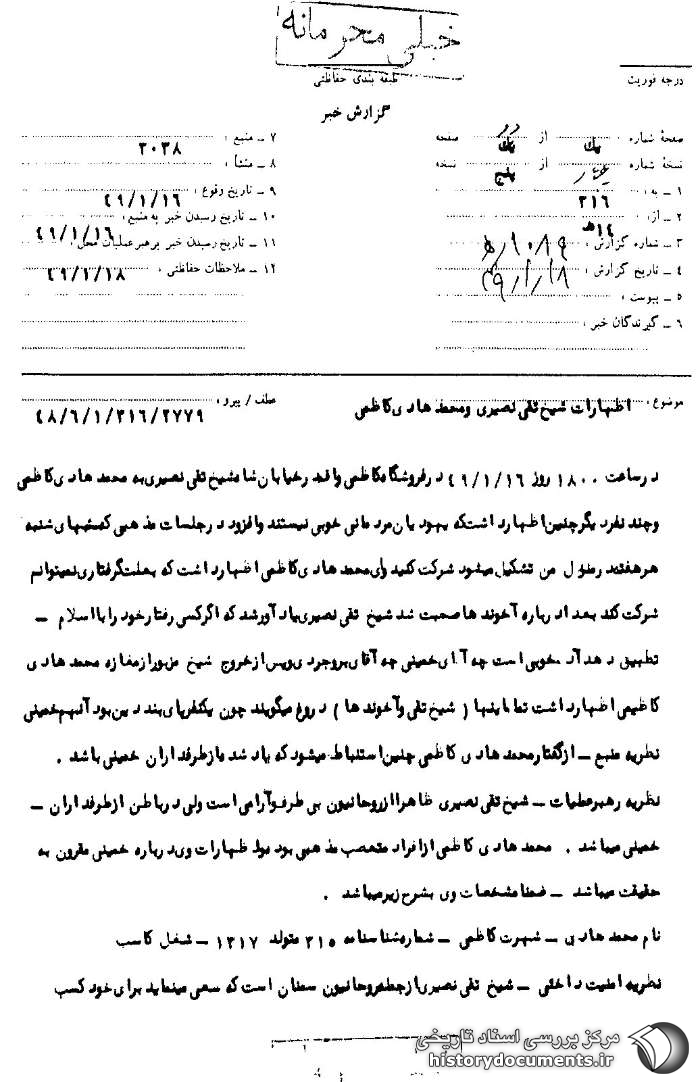 خیلی محرمانه
درجه فوریت
طبقه بندی حفاظتی
گزارش خبر
صفحهٔ شماره یک از دو صفحه
نسخهٔ شماره از پنج نسخه
۱ ـ به : ۳۱۶
۲ ـ از : ۱۴ﻫ
۳ ـ شماره گزارش :
۴ ـ تاریخ گزارش : ۴۹/۱/۱۸
۵ ـ پیوست :
۶ ـ گیرندگان خبر :
۷ ـ منبع : ۲۰۳۸
۸ ـ منشأ :
۹ ـ تاریخ وقوع : ۴۹/۱/۱۶
۱۰ ـ تاریخ رسیدن خبر به منبع : ۴۹/۱/۱۶
۱۱ ـ تاریخ رسیدن خبر برهبر عملیات محل :
۱۲ ـ ملاحظات حفاظتی : ۴۹/۱/۱۸
موضوع : اظهارات شیخ تقی نصیری و محمد هادی کاظمی
عطف / پیرو : ۴۸/۶/۱/۳۱۶/۲۷۷۹
در ساعت ۱۸۰۰ روز ۴۹/۱/۱۶ در فروشگاه کاظمی واقع در خیابان شاه شیخ تقی نصیری به محمد هادی کاظمی
و چند نفر دیگر چنین اظهار داشت که یهودیان مردمانی خوبی نیستند و افزود در جلسات مذهبی که شبهای شنبه
هر هفته در منزل من تشکیل میشود شرکت کنید ولی محمد هادی کاظمی اظهار داشت که بعلت گرفتاری نمیتوانم
شرکت کند بعد از درباره آخوند ها صحبت شد شیخ تقی نصیری یادآور شد که اگر کسی رفتار خود را با اسلام ـ
تطبیق دهد آدم خوبی است چه آقای خمینی چه آقای بروجردی و پس از خروج شیخ مزبور از مغازه محمد هادی
کاظمی اظهار داشت تمام اینها ( شیخ تقی و آخوند ها ) دروغ میگویند چون یکنفر پای بند دین بود آنهم خمینی
نظریه منبع ـ از گفتار محمد هادی کاظمی چنین استنباط میشود که یاد شده از طرفداران خمینی باشد .
نظریه رهبر عملیات ـ شیخ تقی نصیری ظاهرا از روحانیون بی طرف و آرامی است ولی در باطن از طرفداران ـ
خمینی میباشد . محمد هادی کاظمی از افراد متعصب مذهبی بوده و اظهارات وی درباره خمینی مقرون به
حقیقت میباشد ـ ضمنا مشخصات وی بشرح زیر میباشد .
نام محمد هادی ـ شهرت کاظمی ـ شماره شناسنامه ۳۱۵ متولد ۱۳۱۷ ـ شغل کاسب
نظریه امنیت داخلی ـ شیخ تقی نصیری از جمله روحانیون سمنان است که سعی مینماید برای خود کسب
مرکز بررسی اسناد تاریخی
historydocuments.ir